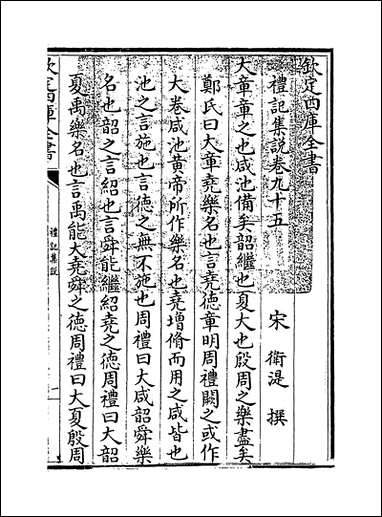 欽定四庫全書
禮記集說卷九十五
宋 衛湜 撰
大章章之也咸池備矣韶繼也夏大也殷周之樂盡矣
鄭氏曰大章堯樂名也言堯德章明周禮闕之或作
大卷咸池黄帝所作樂名也堯增脩而用之咸皆也
池之言施也言德之無不施也周禮曰大咸韶舜樂
名也韶之言紹也言舜能繼紹堯之德周禮曰大韶
夏禹樂名也言禹能大堯舜之德周禮曰大夏殷周
欽定四庫全書
禮記集說